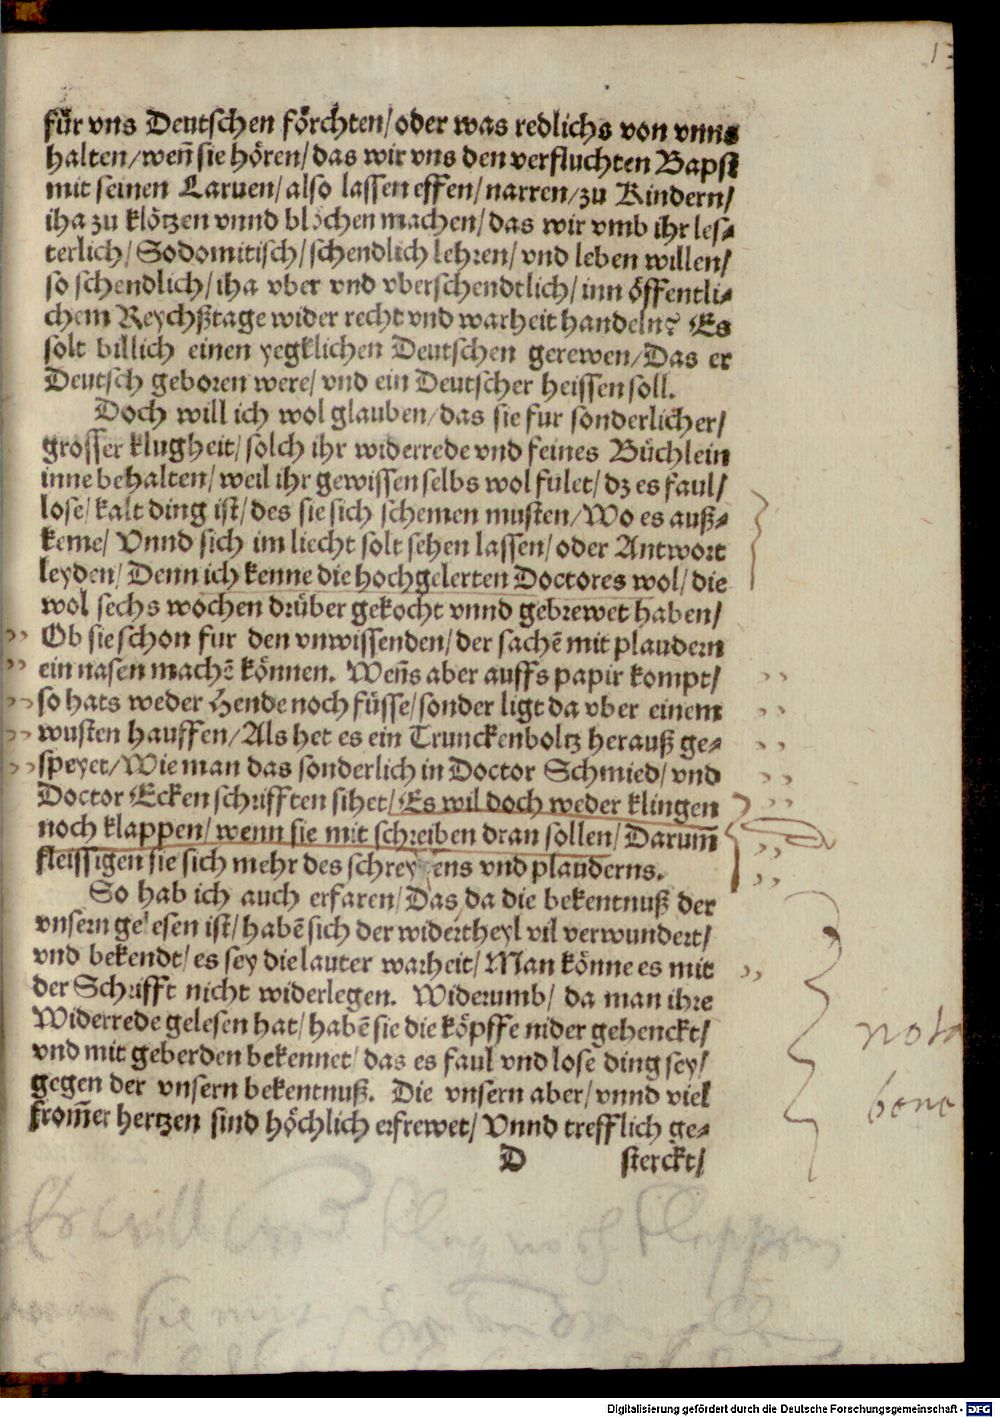 13
für vns Deutschen förchten/ oder was redlichs von vnns
halten/ weñ sie hören/ das wir vns den verfluchten Bapst
mit seinen Laruen/ also lassen effen/ narren/ zu Kindern/
iha zu klötzen vnnd blöchen machen/ das wir vmb ihr les⸗
terlich/ Sodomitisch/ schendlich lehren/ vnd leben willen/
so schendlich/ iha vber vnd vberschendtlich/ inn öffentli⸗
chem Reychßtage wider recht vnd warheit handeln? Es
solt billich einen yegklichen Deutschen gerewen/ Das er
Deutsch geboren were/ vnd ein Deutscher heissen soll.
Doch will ich wol glauben/ das sie fur sonderlicher/
grosser klugheit/ solch ihr widerrede vnd feines Büchlein
inne behalten/ weil ihr gewissen selbs wol fület/ dz es faul/
lose/ kalt ding ist/ des sie sich schemen musten/ Wo es auß⸗
keme/ Vnnd sich im liecht solt sehen lassen/ oder Antwort
leyden/ Denn ich kenne die hochgelerten Doctores wol/ die
wol sechs wochen drüber gekocht vnnd gebrewet haben/
Ob sie schon fur den vnwissenden/ der sachē mit plaudern
ein nasen machē können. Weñs aber auffs papir kompt/
so hats weder Hende noch füsse/ sonder ligt da vber einem
wusten hauffen/ Als het es ein Trunckenboltz herauß ge⸗
speyet/ Wie man das sonderlich in Doctor Schmied/ vnd
Doctor Ecken schrifften sihet/ Es wil doch weder klingen
noch klappen/ wenn sie mit schreiben dran sollen/ Darum̃
fleissigen sie sich mehr des schreyens vnd plauderns.
So hab ich auch erfaren/ Das da die bekentnuß der
vnsern gelesen ist/ habē sich der widertheyl vil verwundert/
vnd bekendt/ es sey die lauter warheit/ Man könne es mit
der Schrifft nicht widerlegen. Widerumb/ da man ihre
Widerrede gelesen hat/ habē sie die köpffe nider gehenckt/
vnd mit geberden bekennet/ das es faul vnd lose ding sey/
gegen der vnsern bekentnuß. Die vnsern aber/ vnnd viel
from̃er hertzen sind höchlich erfrewet/ Vnnd trefflich ge⸗
D sterckt/
nota
bene
Es will
noch klappen
sie mit
Digitalisierung gefördert durch die Deutsche Forschungsgemeinschaft - DFG